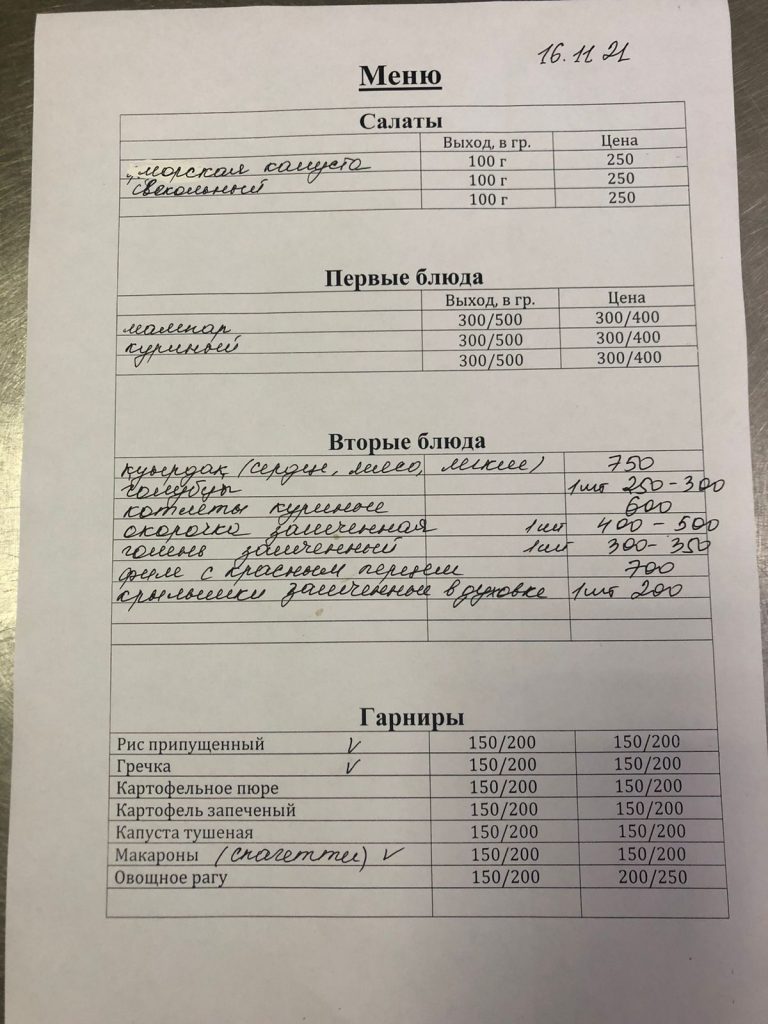 16.11 21
Меню
Салаты
Выход, в гр. Цена
морская капуста 100 г 250
свекольный 100 г 250
100 г 250
Первые блюда
Выход, в гр. Цена
мампар 300/500 300/400
куриный 300/500 300/400
300/500 300/400
Вторые блюда
куырдак (сердце, мясо, легкие) 750
голубцы 1шт 250-300
котлеты куриные 600
окорочка запеченная 1шт 400-500
голень запеченный 1шт 300-350
филе с красным перцем 700
крылышки запеченные в духовке 1шт 200
Гарниры
Рис припущенный ✓ 150/200 150/200
Гречка ✓ 150/200 150/200
Картофельное пюре 150/200 150/200
Картофель запеченый 150/200 150/200
Капуста тушеная 150/200 150/200
Макароны (спагетти) ✓ 150/200 150/200
Овощное рагу 150/200 200/250